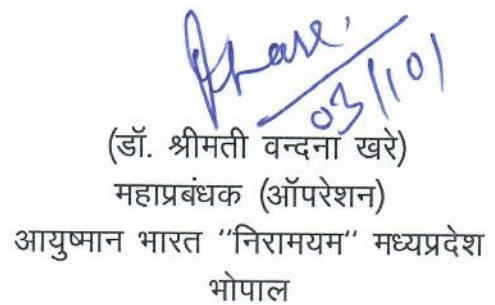 Khare
03/10/
(डॉ. श्रीमती वन्दना खरे)
महाप्रबंधक (ऑपरेशन)
आयुष्मान भारत ‘‘निरामयम‘‘ मध्यप्रदेश
भोपाल